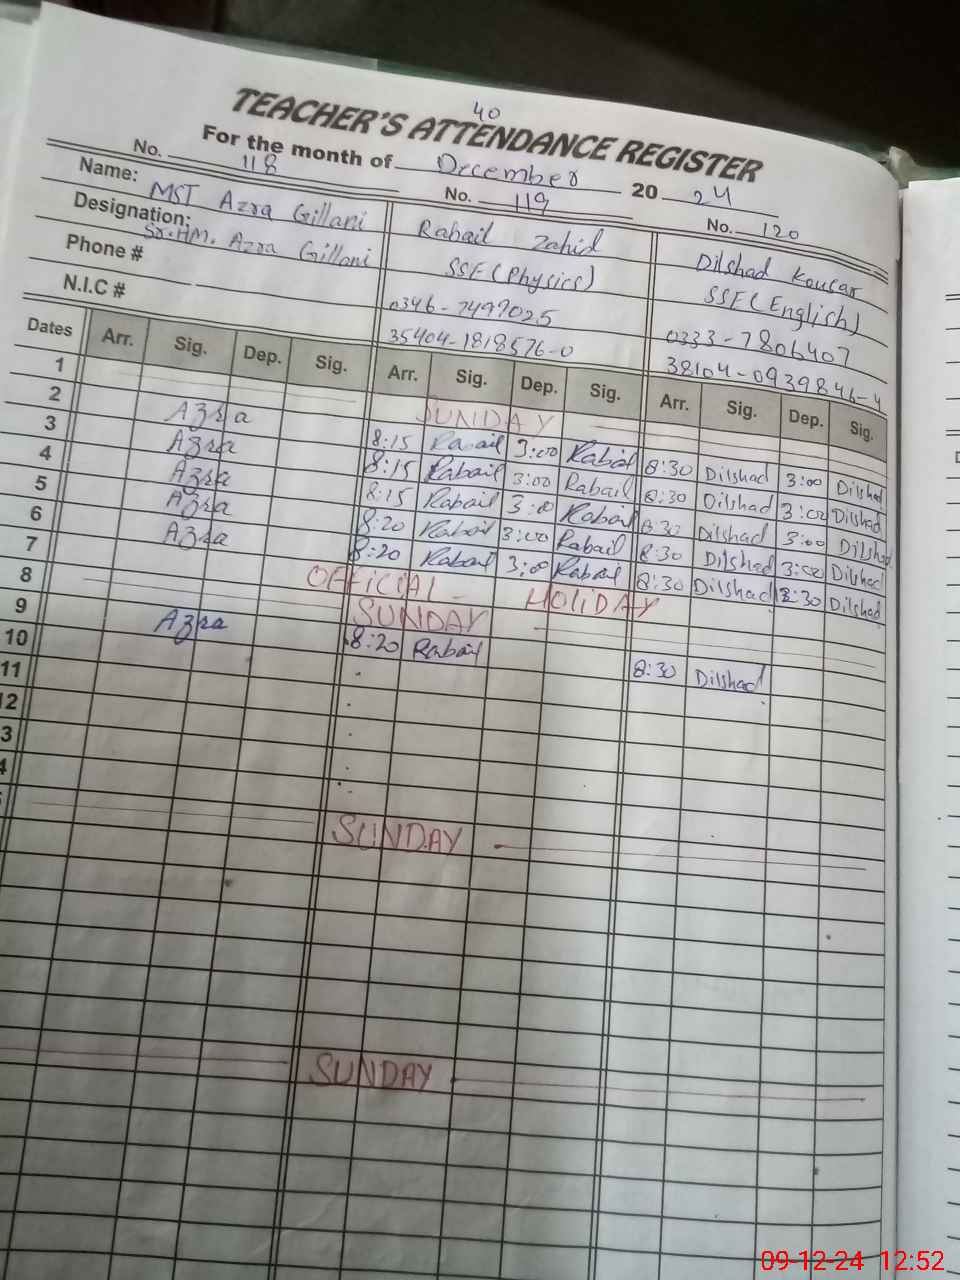 40
TEACHER'S ATTENDANCE REGISTER
For the month of December 2024
No. 118 No. 119 No. 120
Name: MST Azra Gillani Rabail Zahid Dilshad Kousar
Designation: Sr.HM. Azra Gillani SSE (Physics) SSE (English)
Phone # 0346-7497025 0333-7806407
N.I.C # 35404-1818576-0 38104-0939846-4
Dates Arr. Sig. Dep. Sig. Arr. Sig. Dep. Sig. Arr. Sig. Dep. Sig.
1 SUNDAY
2 Azra 8:15 Rabail 3:00 Rabail 8:30 Dilshad 3:00 Dilshad
3 Azra 8:15 Rabail 3:00 Rabail 8:30 Dilshad 3:00 Dilshad
4 Azra 8:15 Rabail 3:00 Rabail 8:30 Dilshad 3:00 Dilshad
5 Azra 8:20 Rabail 3:00 Rabail 8:30 Dilshad 3:00 Dilshad
6 Azra 8:20 Rabail 3:00 Rabail 8:30 Dilshad 8:30 Dilshad
7 OFFICIAL - HOLIDAY
8 SUNDAY
9 Azra 8:20 Rabail 8:30 Dilshad
10
11
12
3
4
SUNDAY
SUNDAY
09-12-24 12:52